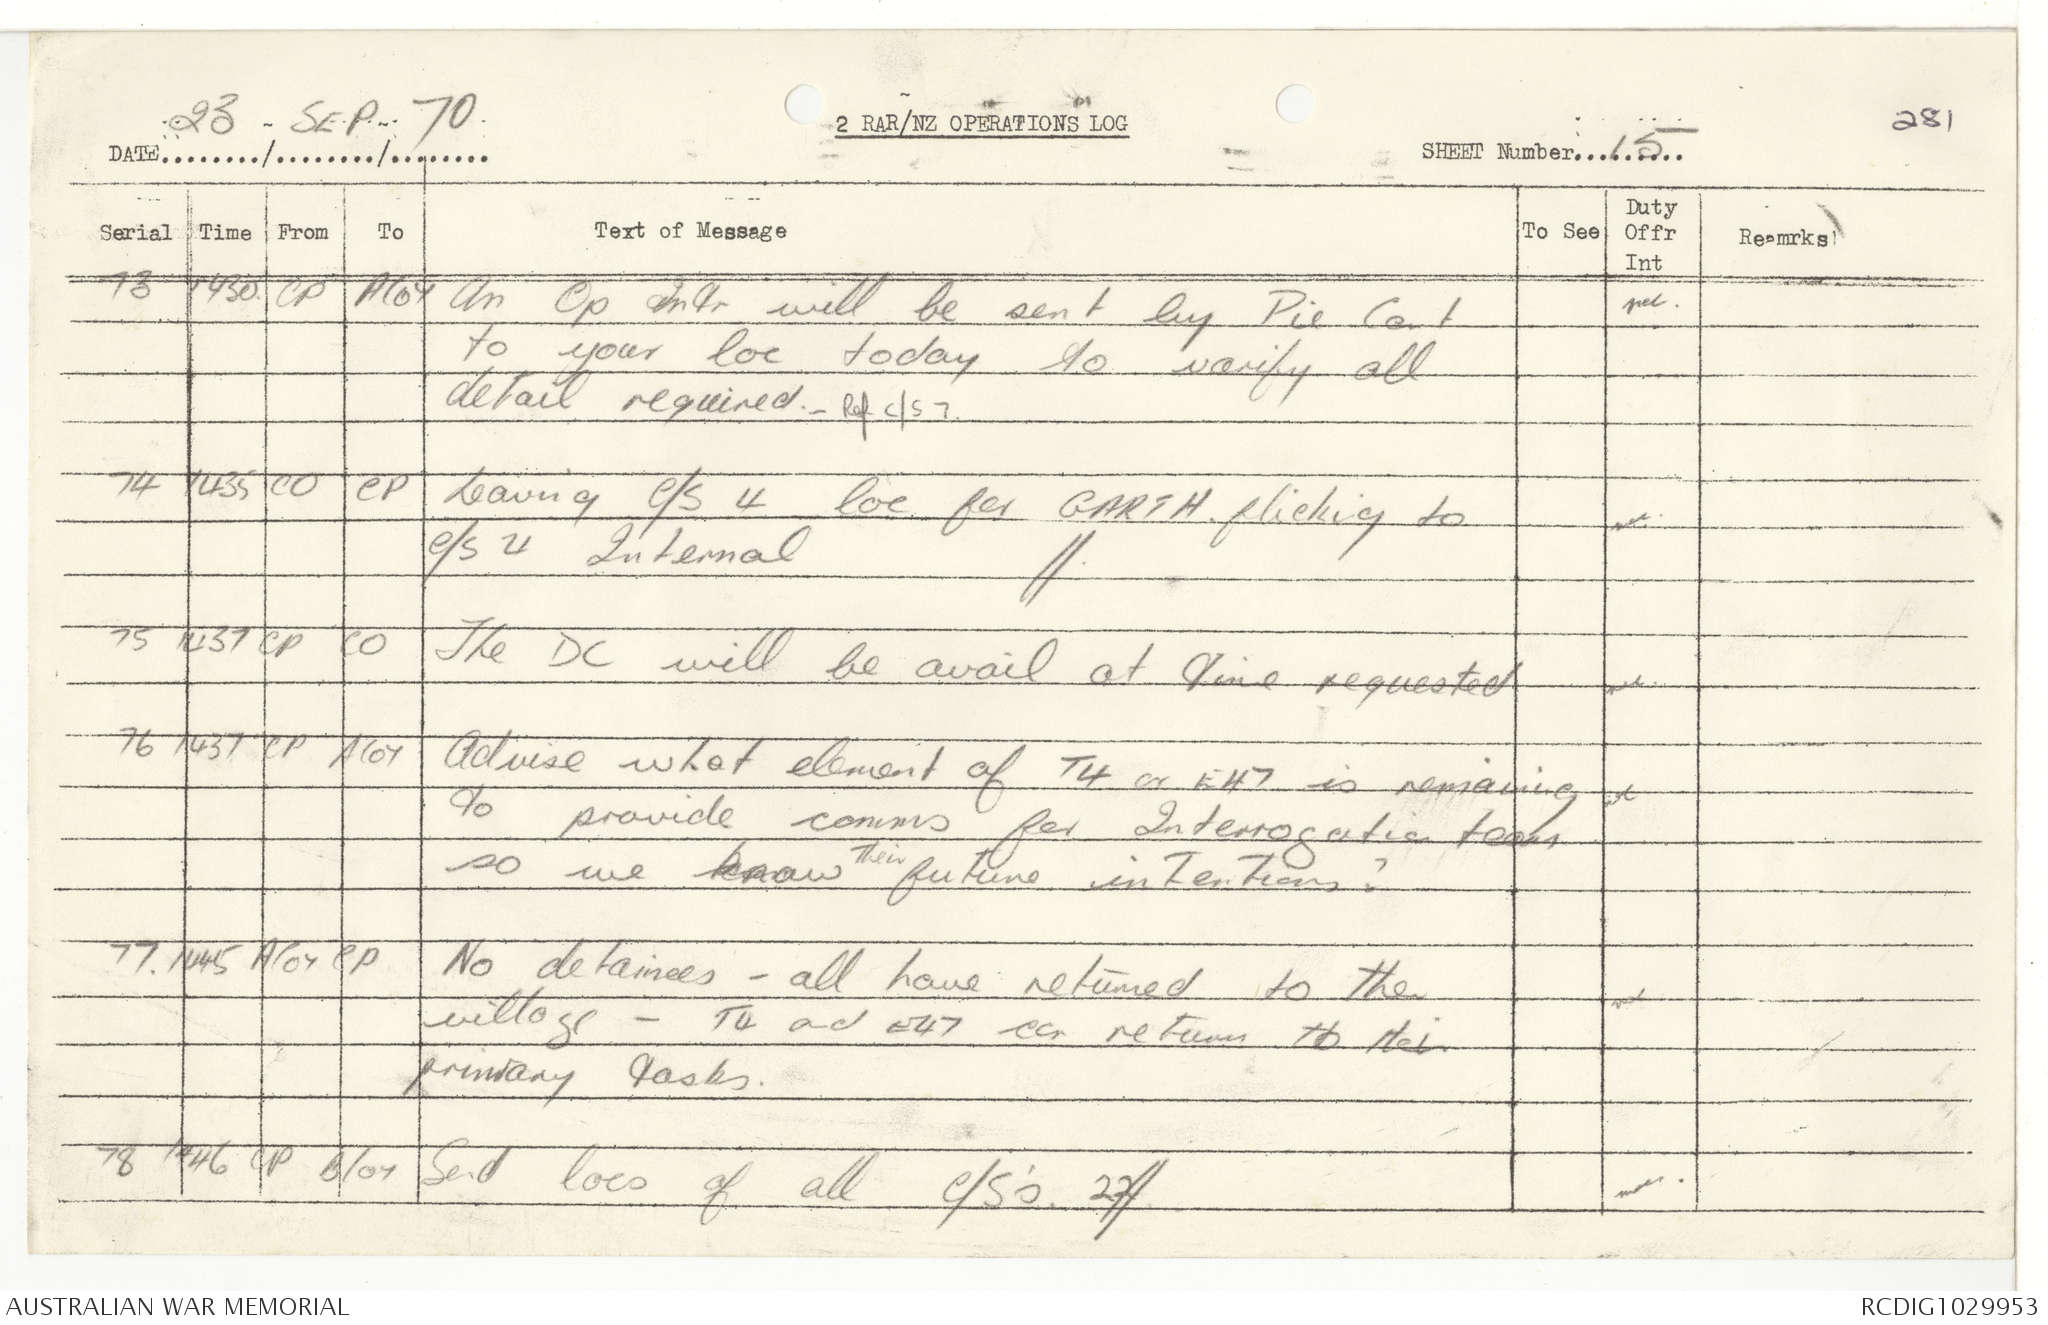 281
23 - SEP - 70
2 RAR/NZ OPERATIONS LOG
DATE......../......../........
SHEET Number..15..
Serial Time From To Text of Message To See Duty Offr Int Reamrks
73 1430 CP A Coy An Op will be sent by Pie Cart
to your loc today to varify all
detail required. - Ref C/S 7.
74 1435 CO CP Leaving C/S 4 loc for GARTH flicking to
C/S 4 Internal //.
75 1437 CP CO The DC will be avail at time requested
76 1437 CP A Coy Advise what element of T4 or E47 is remaining
to provide comms for Interrogation team
so we know their future intentions?
77. 1445 A Coy CP No detainees - all have returned to the
village - T4 and E47 can return to their
primary tasks.
78 1446 CP B Coy Send locs of all C/S's. 22//
AUSTRALIAN WAR MEMORIAL
RCDIG1029953